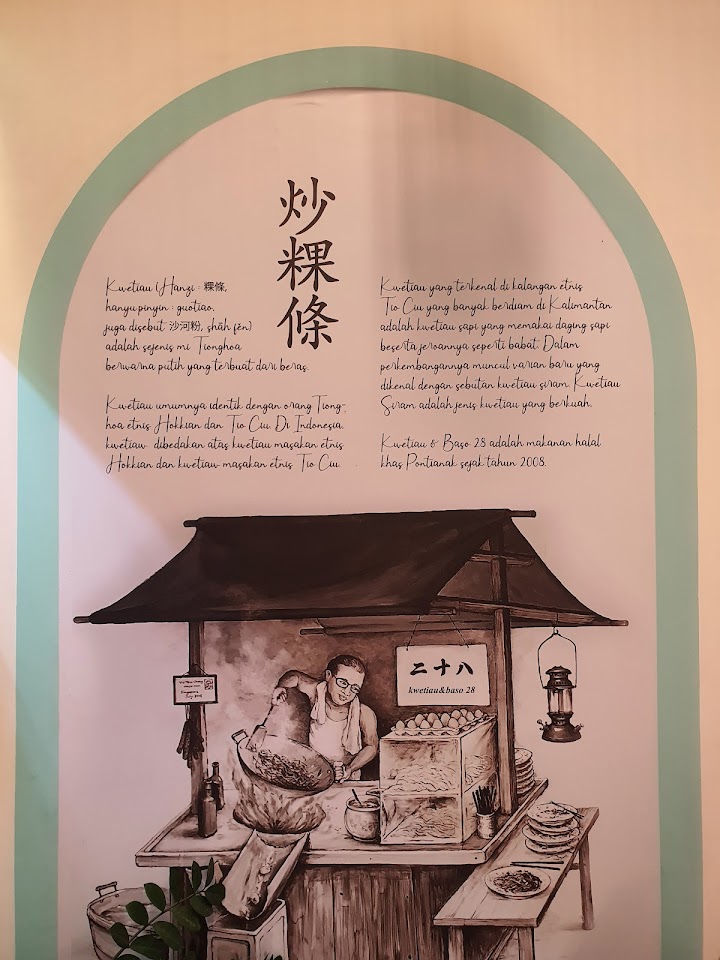 炒粿條
Kwetiau (Hanzi : 粿條,
hanyu pinyin : guotiao,
juga disebut 沙河粉, shāh fěn)
adalah sejenis mi Tionghoa
berwarna putih yang terbuat dari beras.
Kwetiau umumnya identik dengan orang Tiong-
hoa etnis Hokkian dan Tio Ciu. Di Indonesia,
kwetiau dibedakan atas kwetiau masakan etnis
Hokkian dan kwetiau masakan etnis Tio Ciu.
Kwetiau yang terkenal di kalangan etnis
Tio Ciu yang banyak berdiam di Kalimantan
adalah kwetiau sapi yang memakai daging sapi
beserta jeroannya seperti babat. Dalam
perkembangannya muncul varian baru yang
dikenal dengan sebutan kwetiau siram. Kwetiau
Siram adalah jenis kwetiau yang berkuah.
Kwetiau & Baso 28 adalah makanan halal
khas Pontianak sejak tahun 2008.
二十八
kwetiau&baso 28